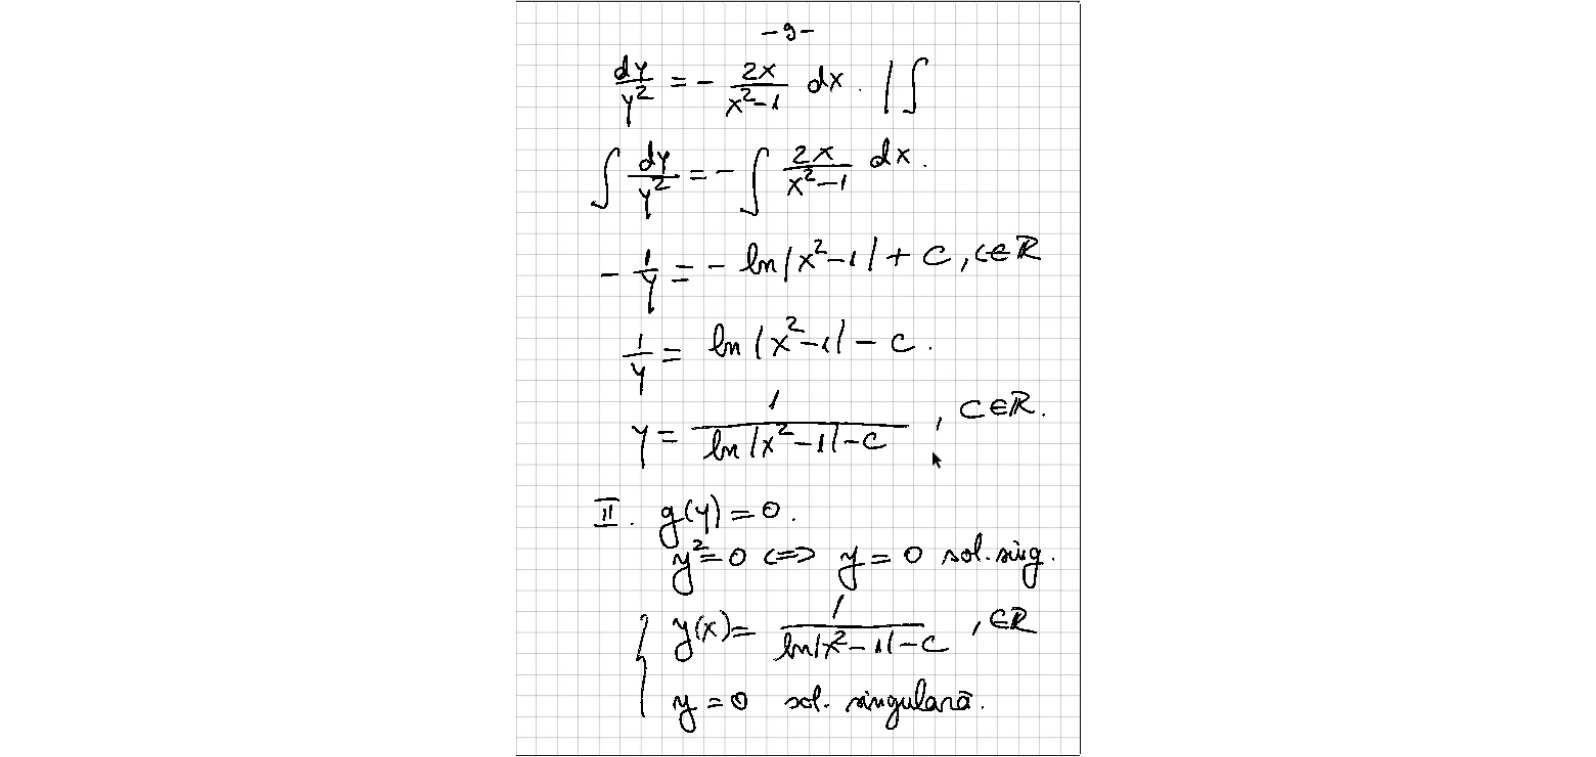 -9-
dy/y² = - 2x/(x²-1) dx. | ∫
∫ dy/y² = - ∫ 2x/(x²-1) dx.
- 1/y = - ln|x²-1| + C, C∈ℝ
1/y = ln|x²-1| - C.
y = 1/(ln|x²-1| - C), C∈ℝ.
II. g(y) = 0.
y² = 0 <=> y = 0 sol. sing.
{ y(x) = 1/(ln|x²-1| - C), ∈ℝ
y = 0 sol. singulară.